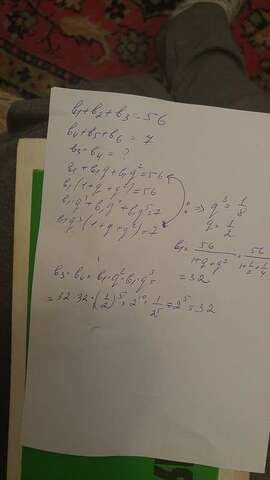 b₁+b₂+b₃=56
b₄+b₅+b₆=7
b₃·b₄=?
b₁+b₁q+b₁q²=56
b₁(1+q+q²)=56
b₁q³+b₁q⁴+b₁q⁵=7
b₁q³(1+q+q²)=7
: ⇒ q³=1/8
q=1/2
b₁=56/(1+q+q²)=56/(1+1/2+1/4)
=32
b₃·b₄=b₁·q²·b₁·q³=
=32·32·(1/2)⁵=2¹⁰·1/2⁵=2⁵=32